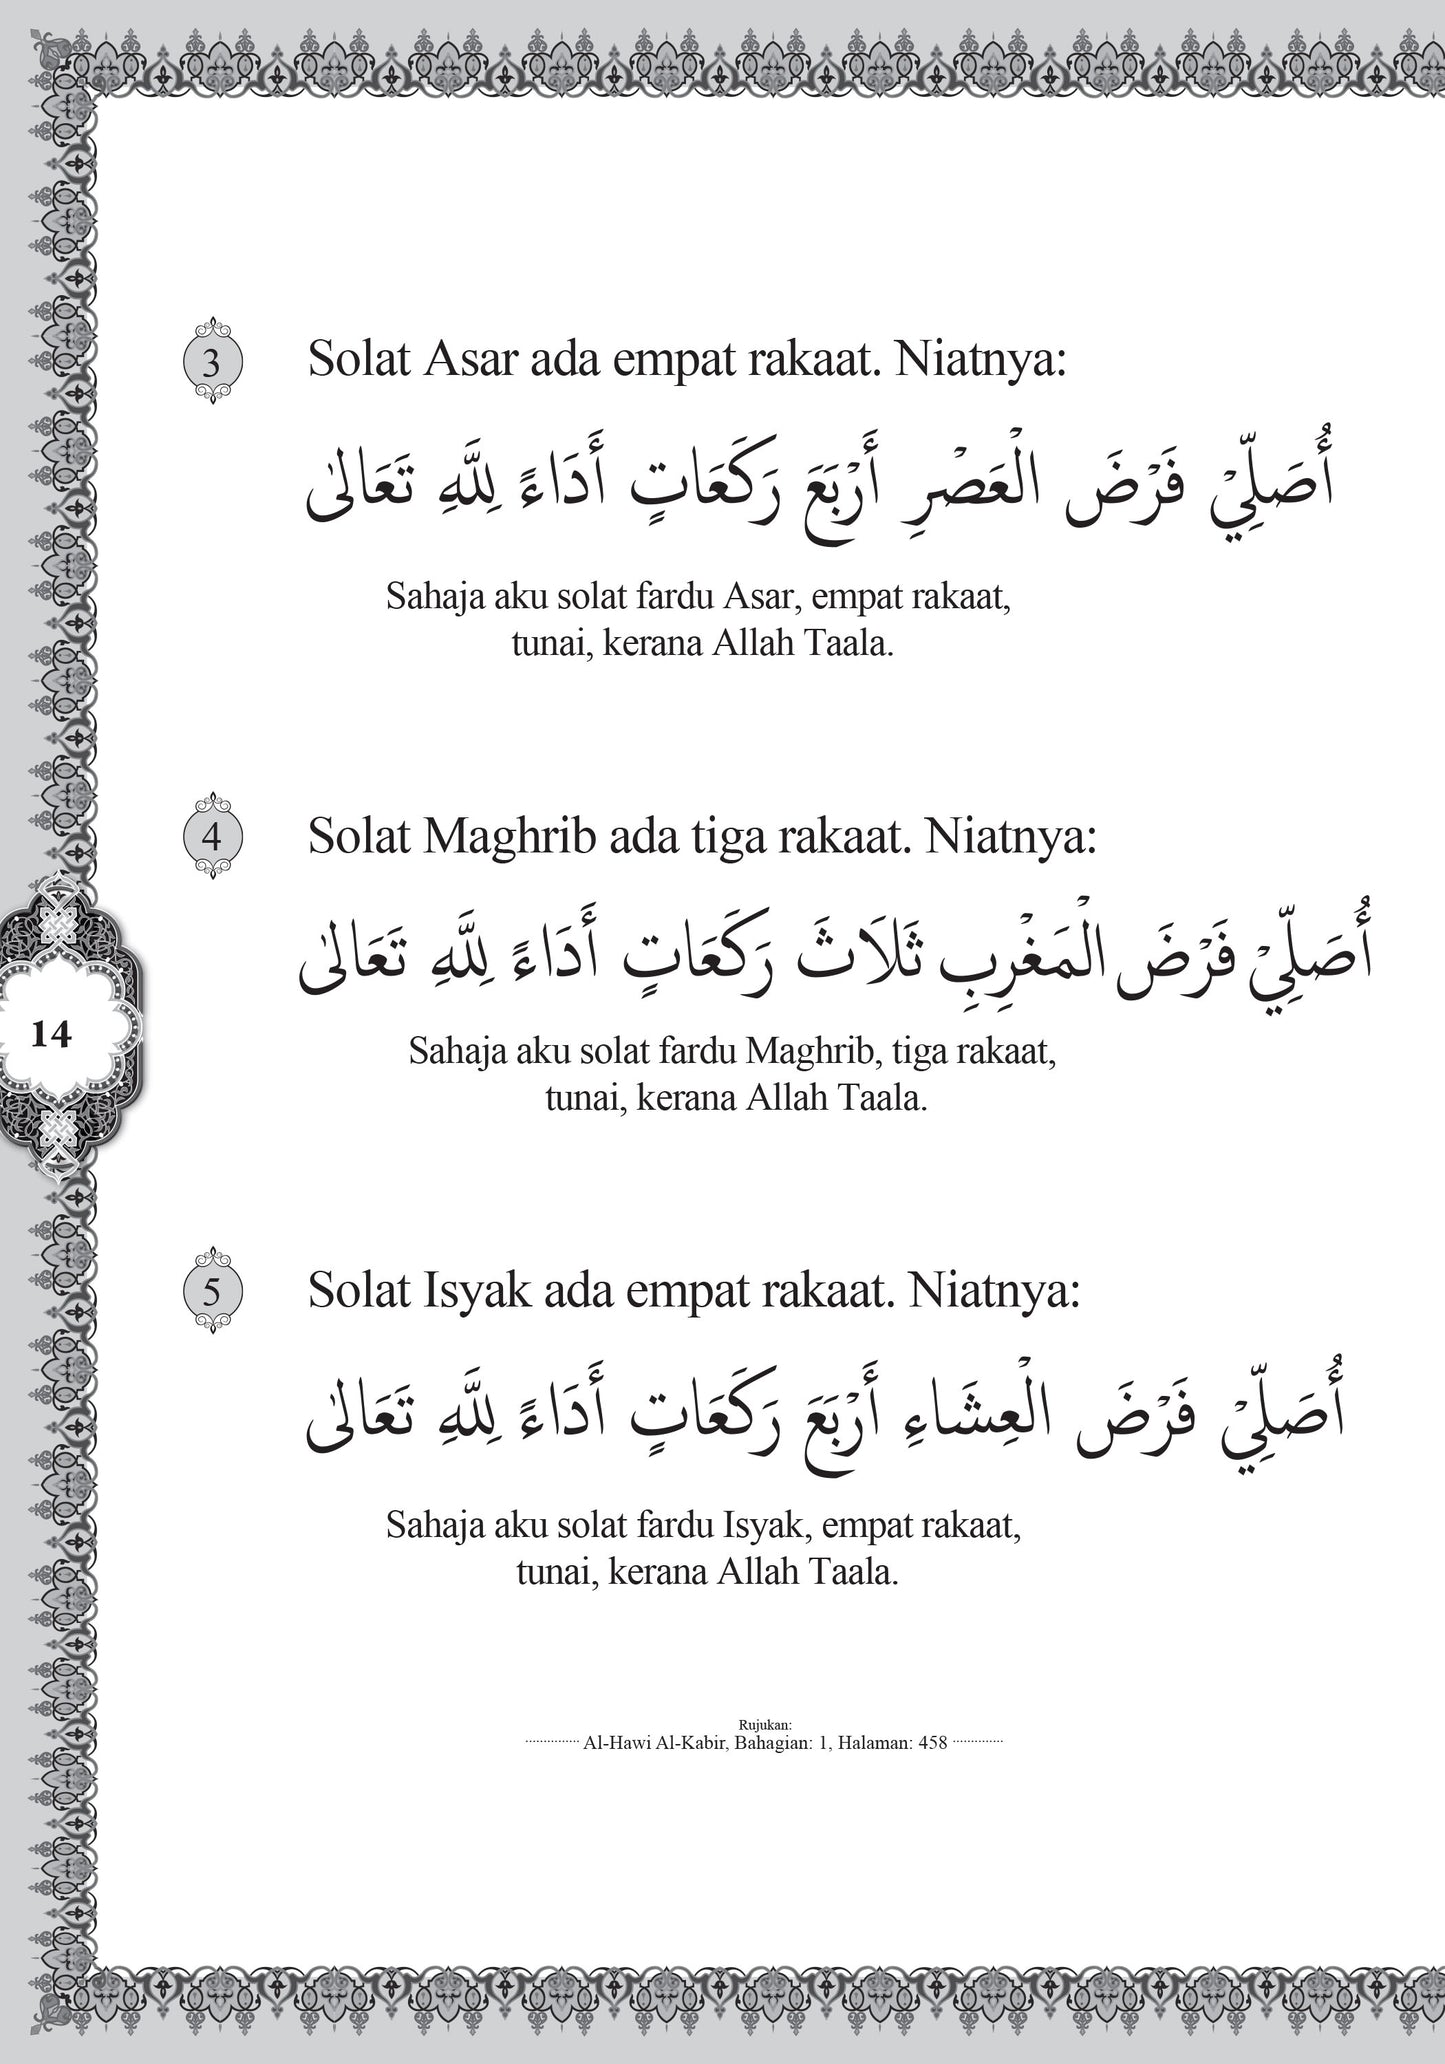 3
Solat Asar ada empat rakaat. Niatnya:
أُصَلِّيْ فَرْضَ الْعَصْرِ أَرْبَعَ رَكَعَاتٍ أَدَاءً لِلَّهِ تَعَالٰى
Sahaja aku solat fardu Asar, empat rakaat,
tunai, kerana Allah Taala.
4
Solat Maghrib ada tiga rakaat. Niatnya:
أُصَلِّيْ فَرْضَ الْمَغْرِبِ ثَلَاثَ رَكَعَاتٍ أَدَاءً لِلَّهِ تَعَالٰى
Sahaja aku solat fardu Maghrib, tiga rakaat,
tunai, kerana Allah Taala.
14
5
Solat Isyak ada empat rakaat. Niatnya:
أُصَلِّيْ فَرْضَ الْعِشَاءِ أَرْبَعَ رَكَعَاتٍ أَدَاءً لِلَّهِ تَعَالٰى
Sahaja aku solat fardu Isyak, empat rakaat,
tunai, kerana Allah Taala.
Rujukan:
............... Al-Hawi Al-Kabir, Bahagian: 1, Halaman: 458 ..............